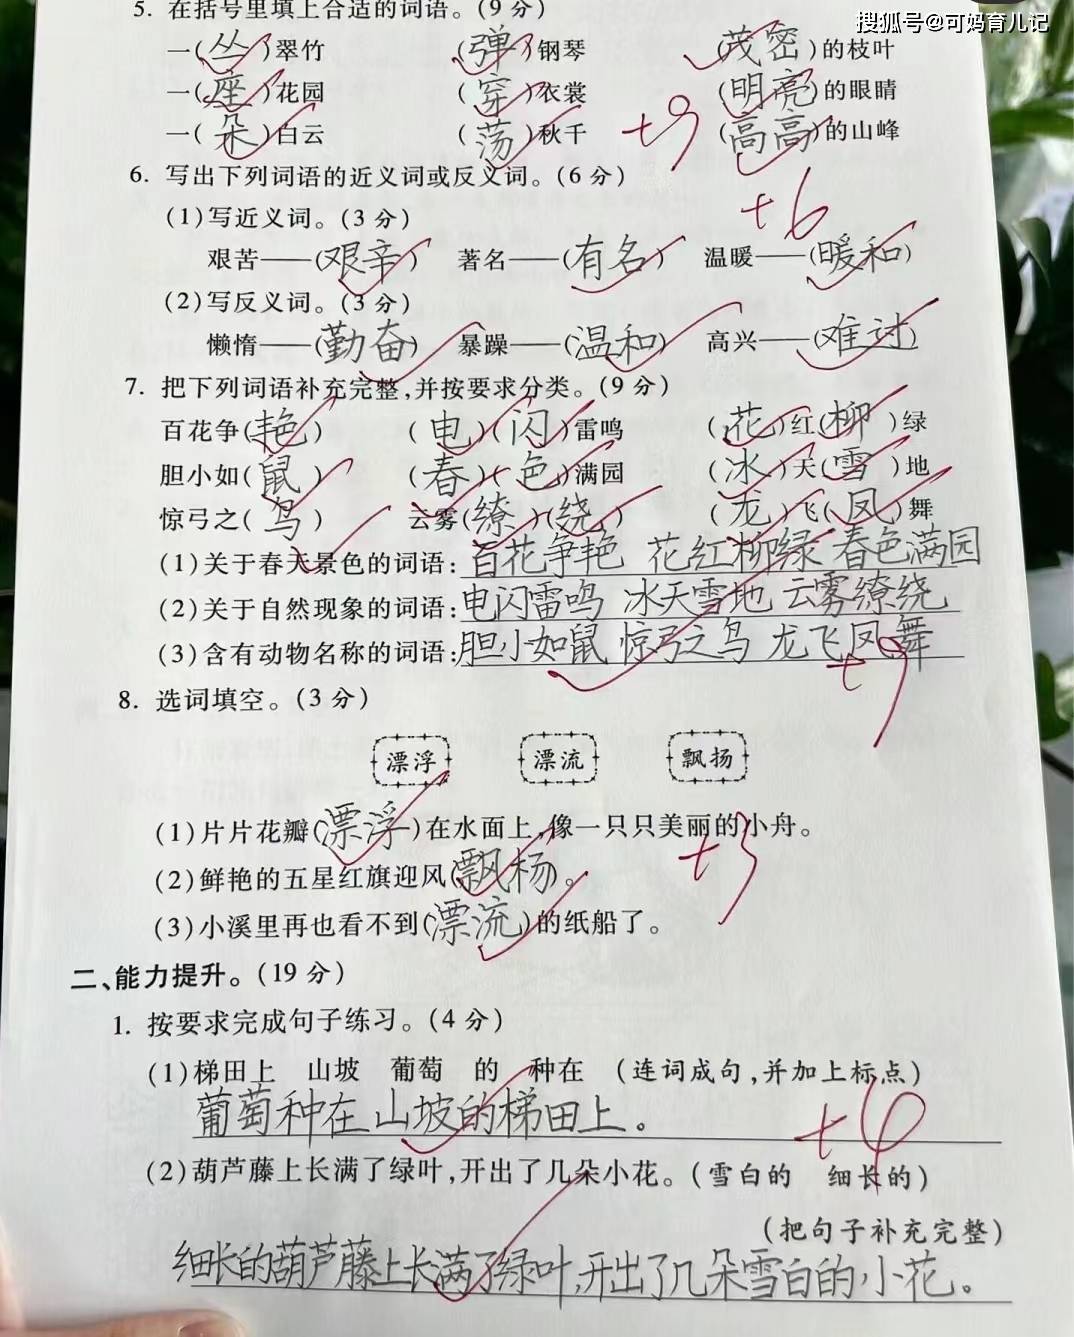 5. 在括号里填上合适的词语。(9分)
搜狐号@可妈育儿记
一(丛)翠竹 (弹)钢琴 (茂密)的枝叶
一(座)花园 (穿)衣裳 (明亮)的眼睛
一(朵)白云 (荡)秋千 +9 (高高)的山峰
6. 写出下列词语的近义词或反义词。(6分)
+6
(1)写近义词。(3分)
艰苦——(艰辛) 著名——(有名) 温暖——(暖和)
(2)写反义词。(3分)
懒惰——(勤奋) 暴躁——(温和) 高兴——(难过)
7. 把下列词语补充完整,并按要求分类。(9分)
百花争(艳) (电)(闪)雷鸣 (花)红(柳)绿
胆小如(鼠) (春)(色)满园 (冰)天(雪)地
惊弓之(鸟) 云雾(缭)(绕) (龙)飞(凤)舞
(1)关于春天景色的词语:百花争艳 花红柳绿 春色满园
(2)关于自然现象的词语:电闪雷鸣 冰天雪地 云雾缭绕
(3)含有动物名称的词语:胆小如鼠 惊弓之鸟 龙飞凤舞
+9
8. 选词填空。(3分)
漂浮 漂流 飘扬
(1)片片花瓣(漂浮)在水面上,像一只只美丽的小舟。
+3
(2)鲜艳的五星红旗迎风(飘杨)。
(3)小溪里再也看不到(漂流)的纸船了。
二、能力提升。(19分)
1. 按要求完成句子练习。(4分)
(1)梯田上 山坡 葡萄 的 种在 (连词成句,并加上标点)
葡萄种在山坡的梯田上。
+4
(2)葫芦藤上长满了绿叶,开出了几朵小花。(雪白的 细长的)
(把句子补充完整)
细长的葫芦藤上长满了绿叶,开出了几朵雪白的小花。